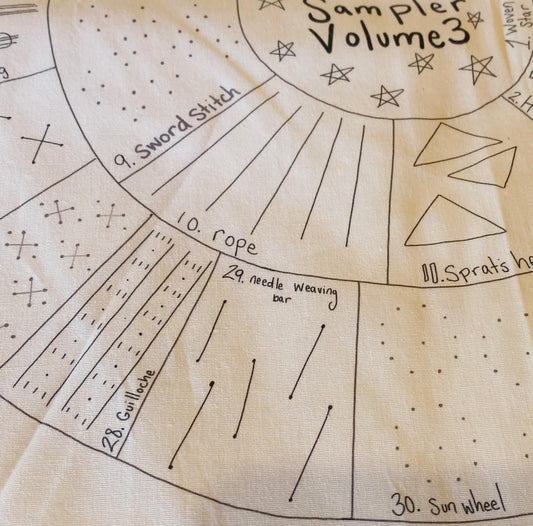 Sampler
Volume3
1. Woven
Star
2. H
9. Sword Stitch
10. rope
11. Sprat's he
28. Guilloche
29. needle weaving
bar
30. Sun wheel